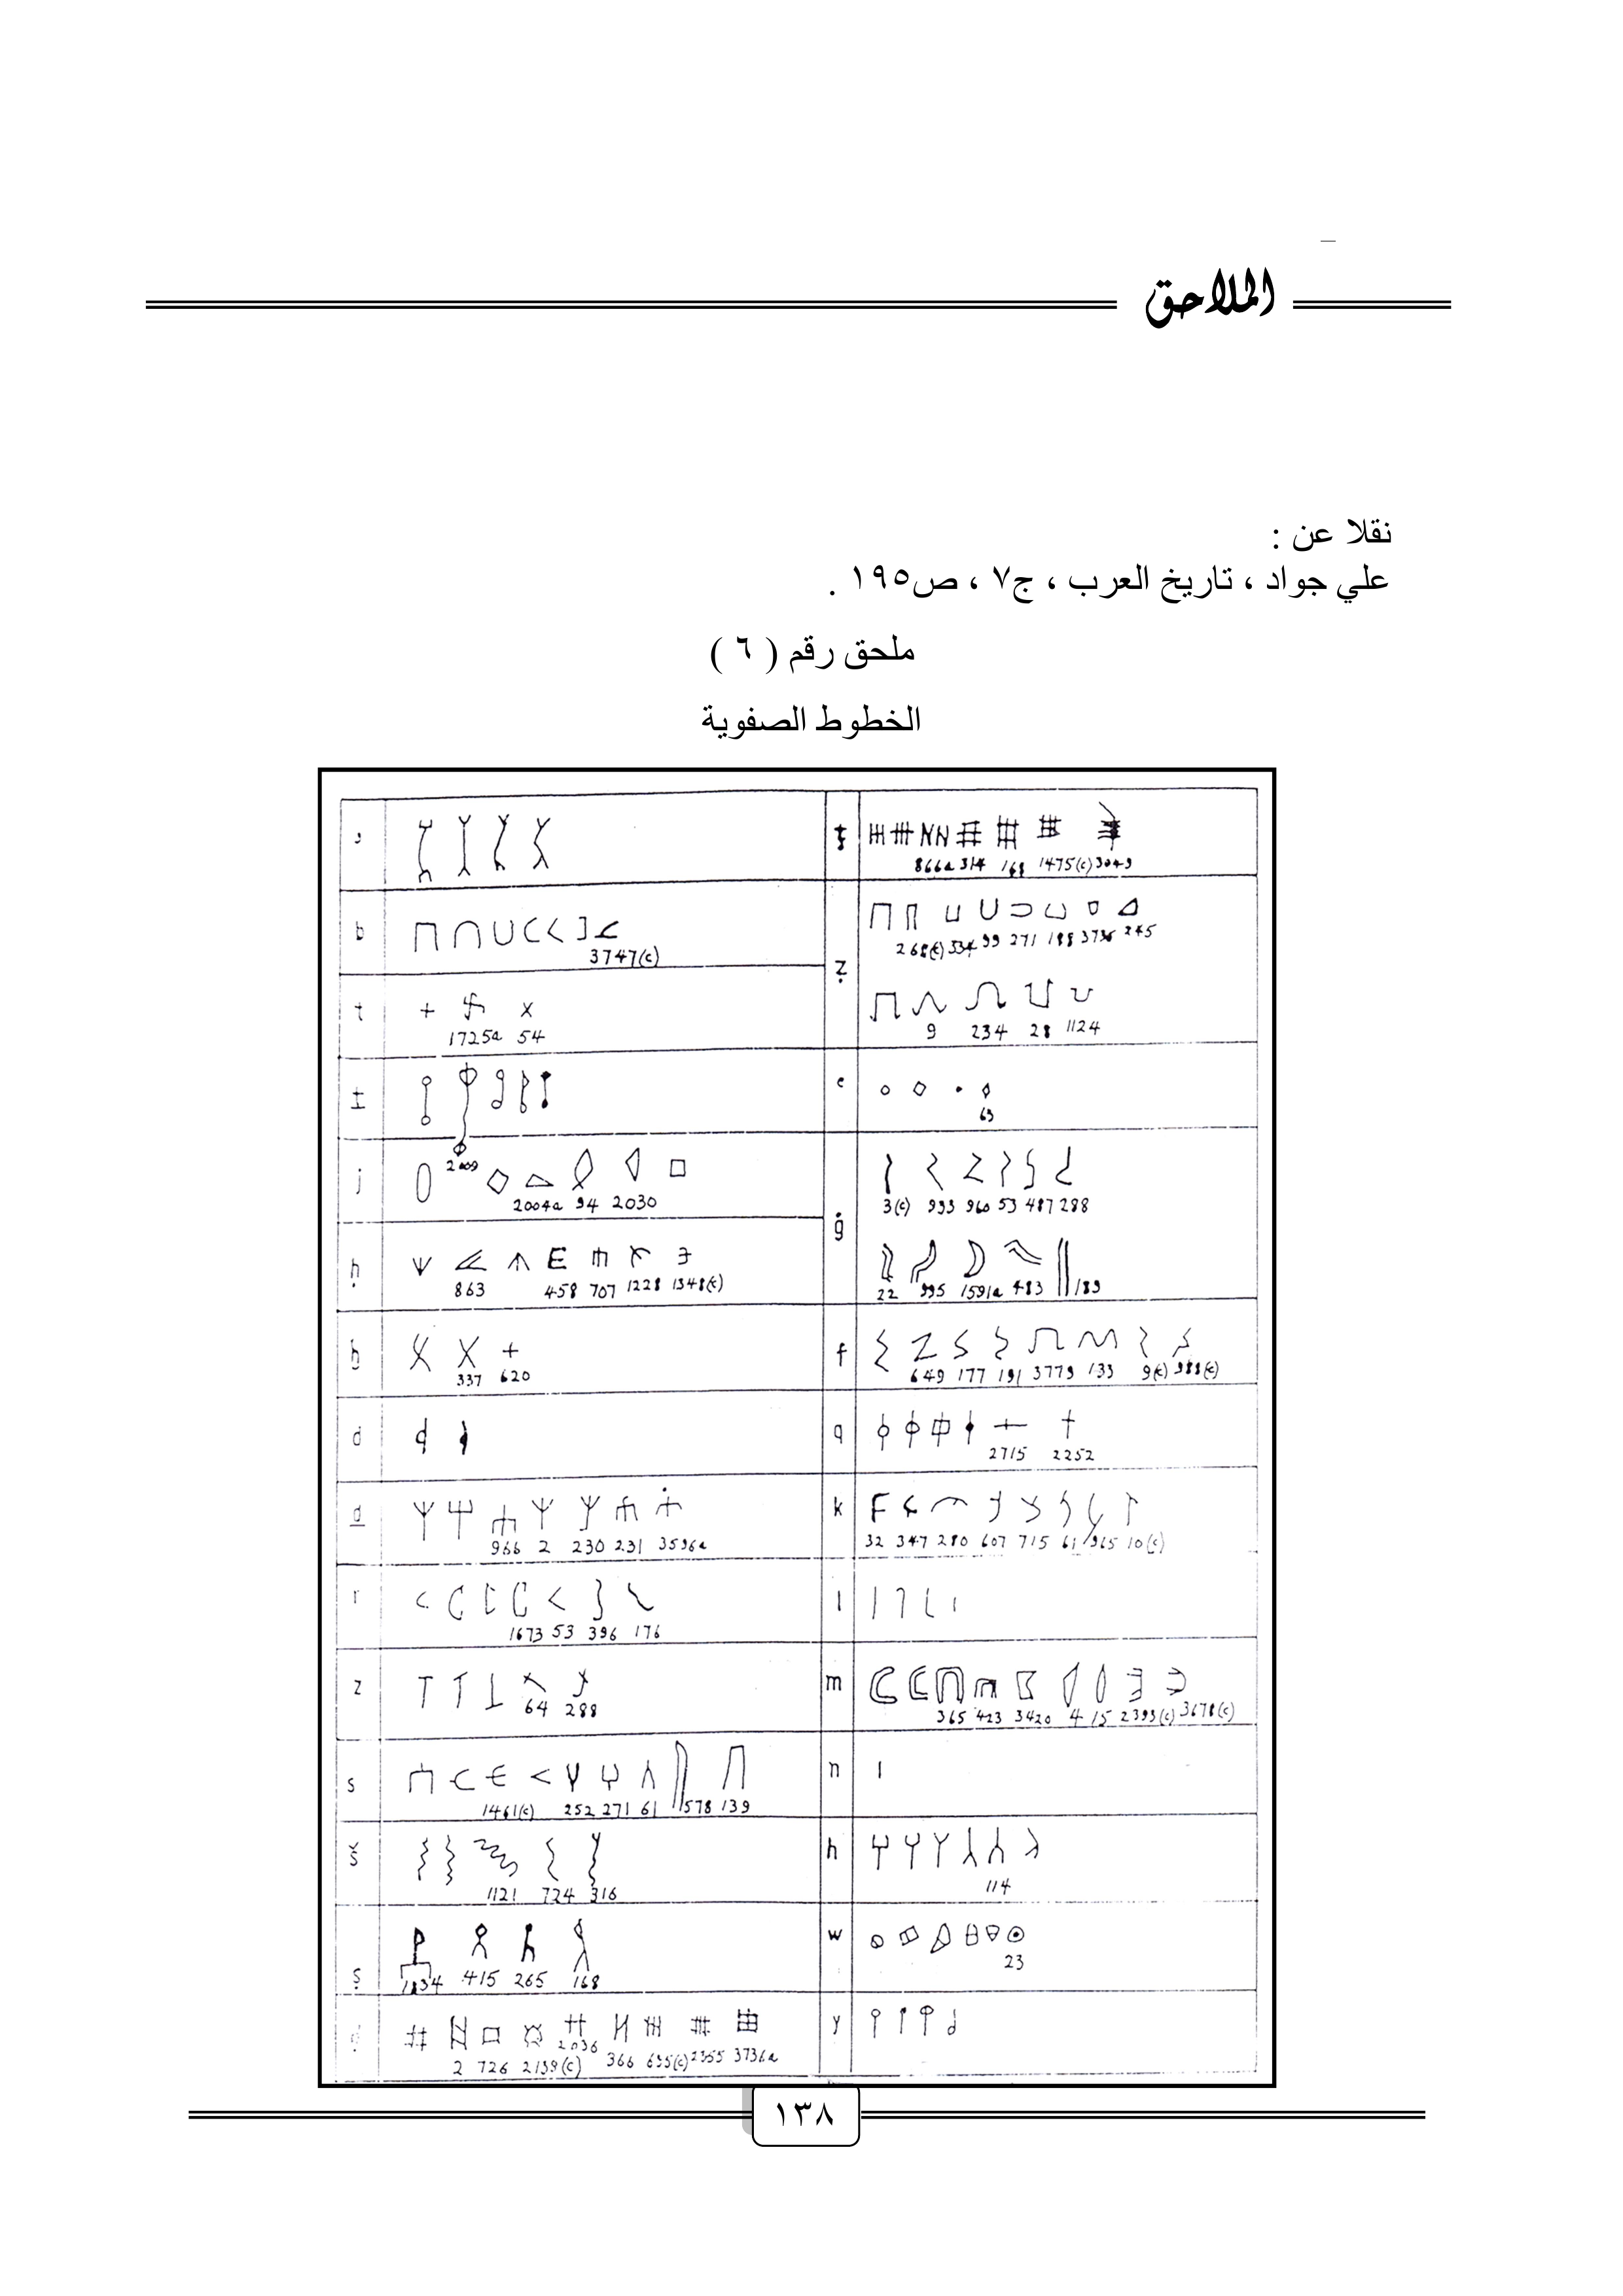 الملاحق
نقلا عن :
علي جواد ، تاريخ العرب ، ج٧ ، ص١٩٥ .
ملحق رقم ( ٦ )
الخطوط الصفوية
ʾ
ṭ
866a 314 168 1475(c) 3049
b
3747(c)
ẓ
268(c) 334 99 271 188 3736 245
9 234 28 1124
t
1725a 54
ṯ
2009
ʿ
63
j
2004a 94 2030
ġ
3(c) 993 960 53 487 288
22 995 1591a 483 189
ḥ
863 458 707 1228 1348(c)
ḫ
337 620
f
649 177 191 3779 133 9(c) 988(c)
d
q
2715 2252
ḏ
966 2 230 231 3596a
k
32 347 280 607 715 61 965 10(c)
r
1673 53 396 176
l
z
64 288
m
365 423 3420 4 15 2393(c) 3678(c)
s
1461(c) 252 271 61 578 139
n
š
1121 724 316
h
114
ṣ
1834 415 265 168
w
23
2 726 2139(c) 2036 366 635(c) 2355 3736a
y
١٣٨